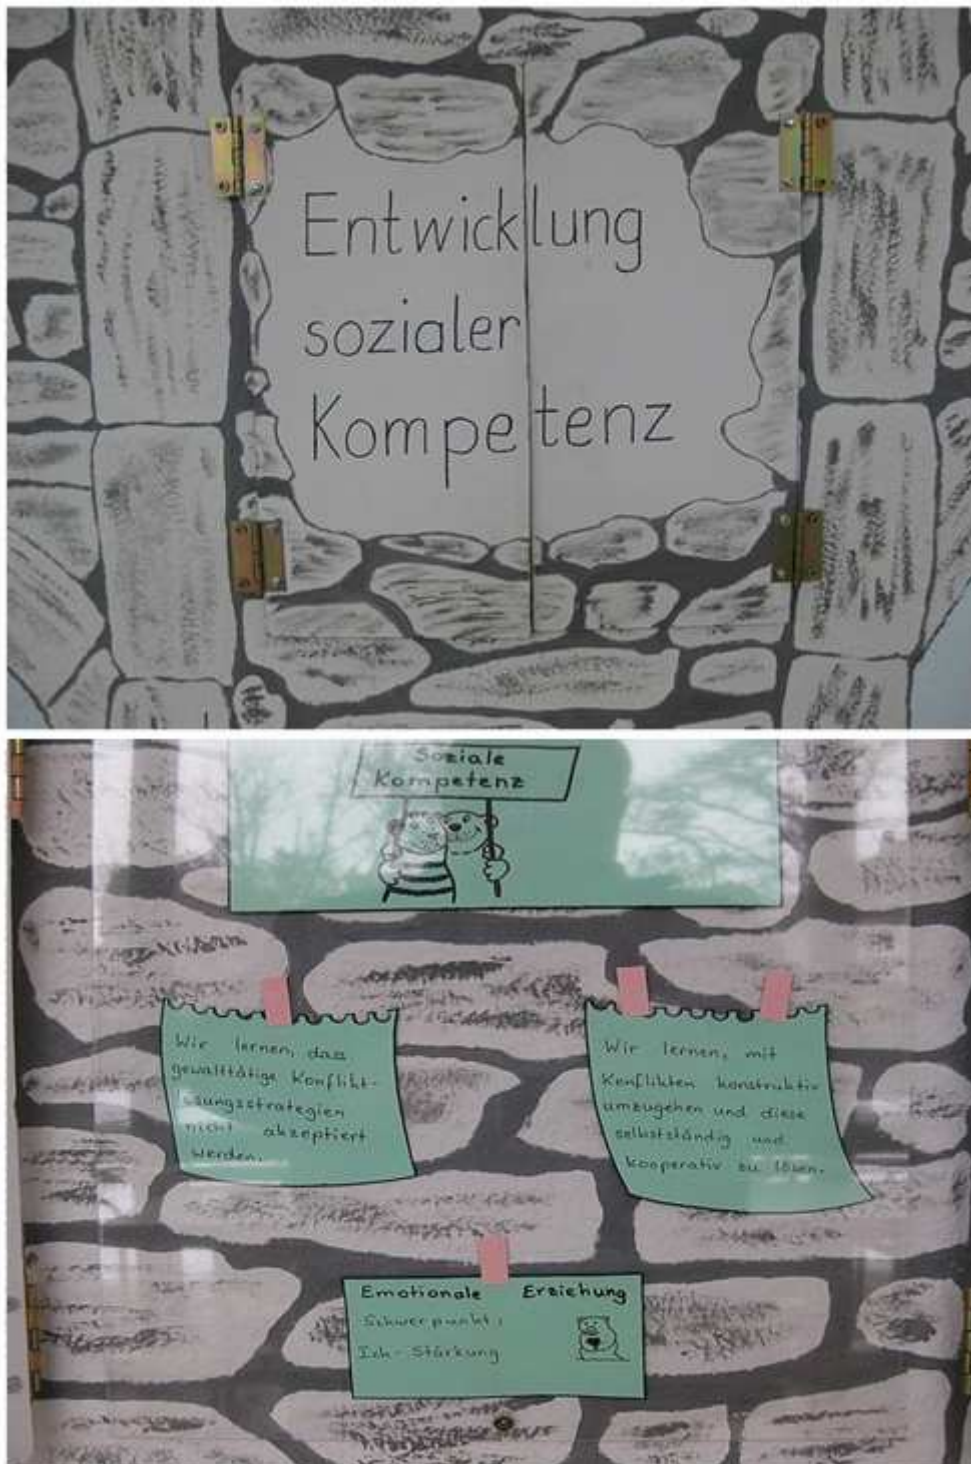 Entwicklung
sozialer
Kompetenz
Soziale
Kompetenz
Wir lernen, dass
gewalttätige Konflikt-
lösungsstrategien
nicht akzeptiert
werden.
Wir lernen, mit
Konflikten konstruktiv
umzugehen und diese
selbstständig und
kooperativ zu lösen.
Emotionale Erziehung
Schwerpunkt:
Ich-Stärkung